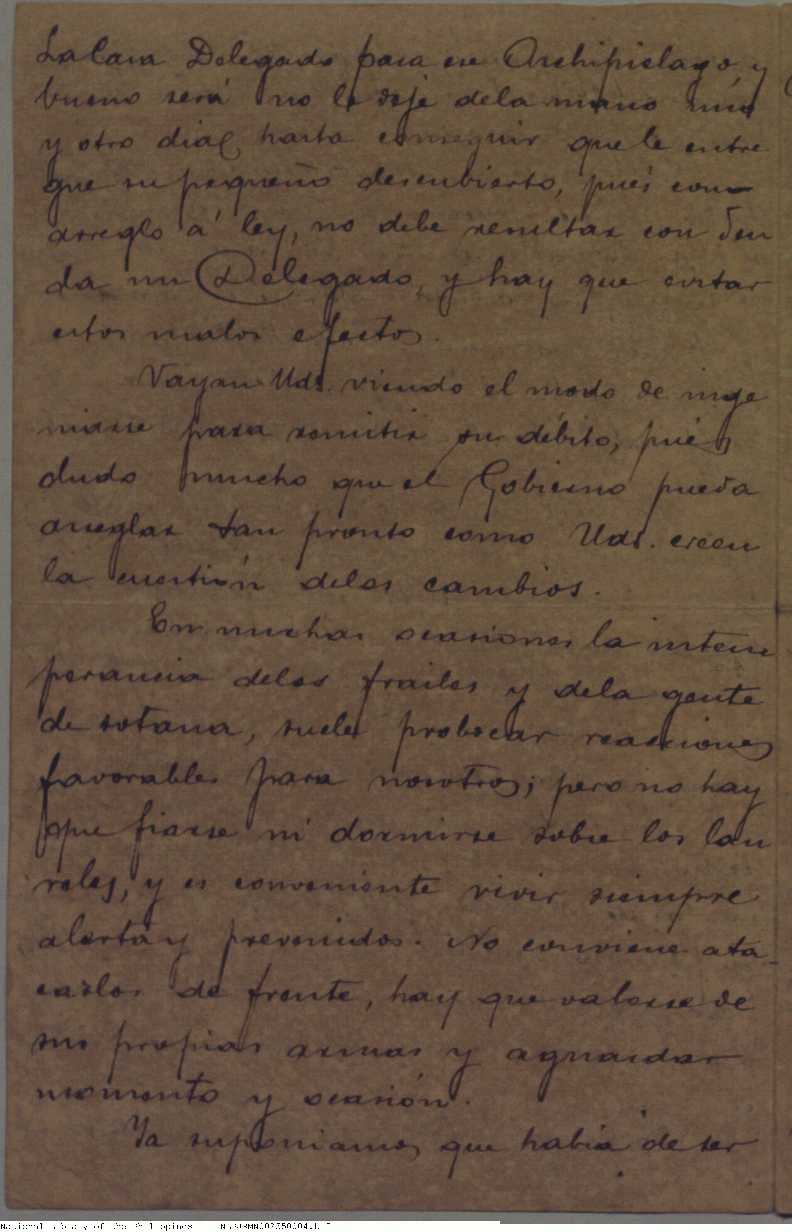 LaCasa Delegado para ese Archipielago, y
bueno será no le deje dela mano uno
y otro dia, hasta conseguir que le entre
gue su pequeño descubierto, pués con
arreglo á ley, no debe resultar con deu
da un Delegado, y hay que evitar
estos malos efectos.
Vayan Uds. viendo el modo de inge
niarse para remitir su débito, pués
dudo mucho que el Gobierno pueda
arreglar tan pronto como Uds. creen
la cuestión delos cambios.
En muchas ocasiones la intem
perancia delos frailes y dela gente
de sotana, suele probocar reacciones
favorables para nosotros; pero no hay
que fiarse ni dormirse sobre los lau
reles, y es conveniente vivir siempre
alerta y prevenidos. No conviene ata-
carlos de frente, hay que valerse de
sus propias armas y aguardar
momento y ocasión.
Ya suponiamos que habia de ser
National Library of the Philippines